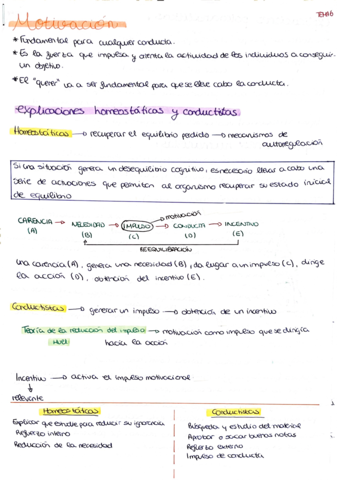 TEMA 6
Motivación
* Fundamental para cualquier conducta.
* Es la fuerza que impulsa y orienta la actividad de los individuos a conseguir
un objetivo.
* El "querer" va a ser fundamental para que se lleve cabo la conducta.
Explicaciones homeostáticas y conductistas
Homeostáticas → recuperar el equilibrio perdido → mecanismos de
autorregulación
Si una situación genera un desequilibrio cognitivo, es necesario llevar a cabo una
serie de actuaciones que permitan al organismo recuperar su estado inicial
de equilibrio
motivación
CARENCIA → NECESIDAD → IMPULSO → CONDUCTA → INCENTIVO
(A) (B) (C) (D) (E)
REEQUILIBRACIÓN
Una carencia (A), genera una necesidad (B), da lugar a un impulso (C), dirige
la acción (D), obtención del incentivo (E).
Conductistas → generar un impulso → obtención de un incentivo
Teoría de la reducción del impulso → motivación como impulso que se dirigía
Hull hacia la acción
Incentivo → activa el impulso motivacional
↓
relevante
Homeostáticas
Explicar que estudie para reducir su ignorancia
Refuerzo interno
Reducción de la necesidad
Conductistas
Búsqueda y estudio del material
Aprobar o sacar buenas notas
Refuerzo externo
Impulso de conducta